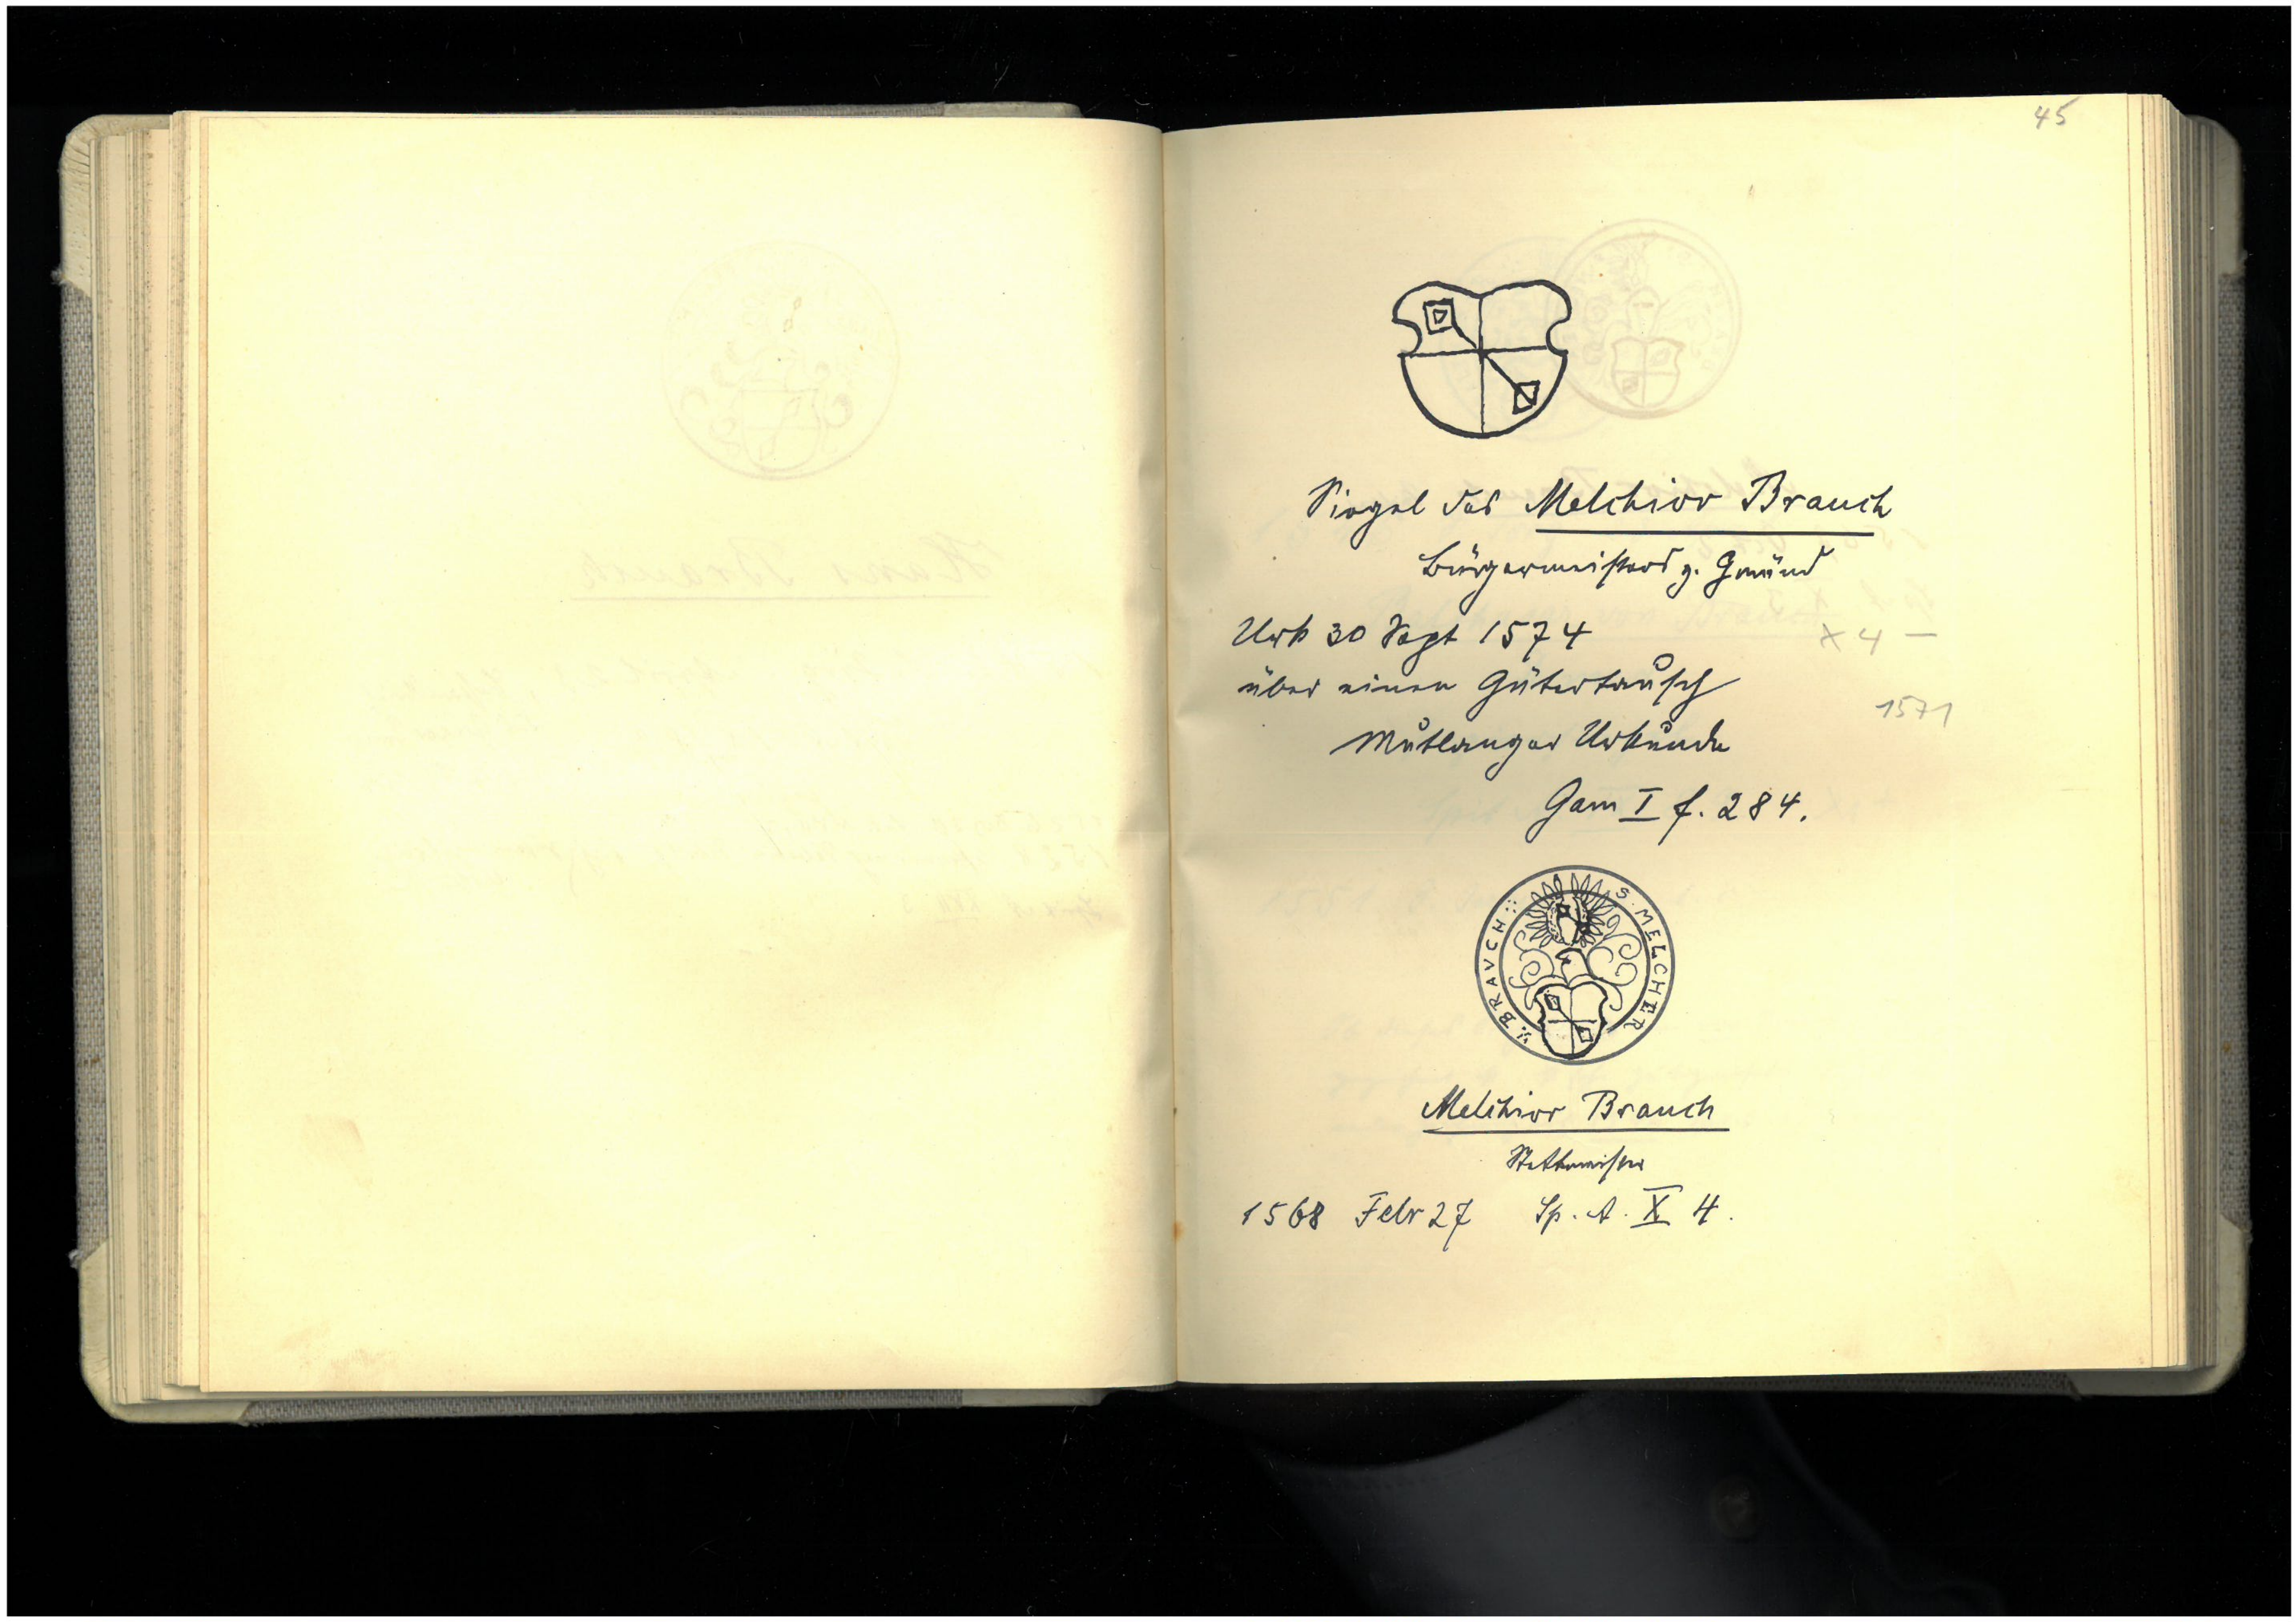 45
Siegel des Melchior Brauch
Bürgermeisters z. Gmünd
Urk 30 Sept 1574
X 4 —
über einen Gütertausch
1571
Mutlanger Urkunde
Gam I f. 284.
S. MELCHER BRAVCH
Melchior Brauch
Stettmeister
1568 Febr 27 Sp. A. X 4.